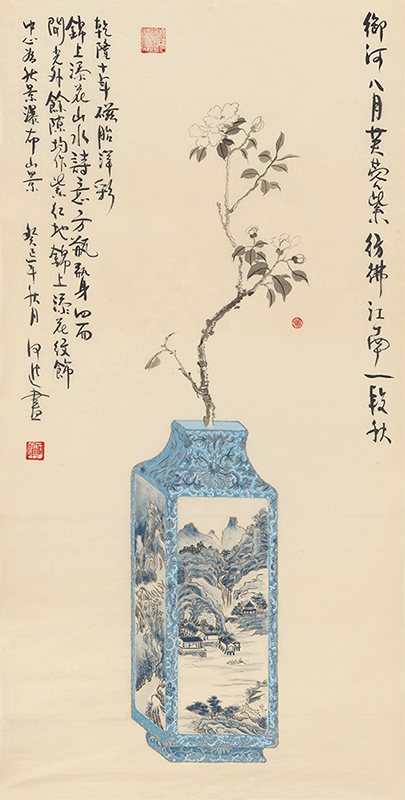 御河八月芙蓉紫彷彿江南一段秋
乾隆十年磁胎洋彩
錦上添花山水詩意方瓶瓶身四面
開光外餘隙均作紫紅地錦上添花紋飾
中心為秋景瀑布山景 癸巳年秋月 畫